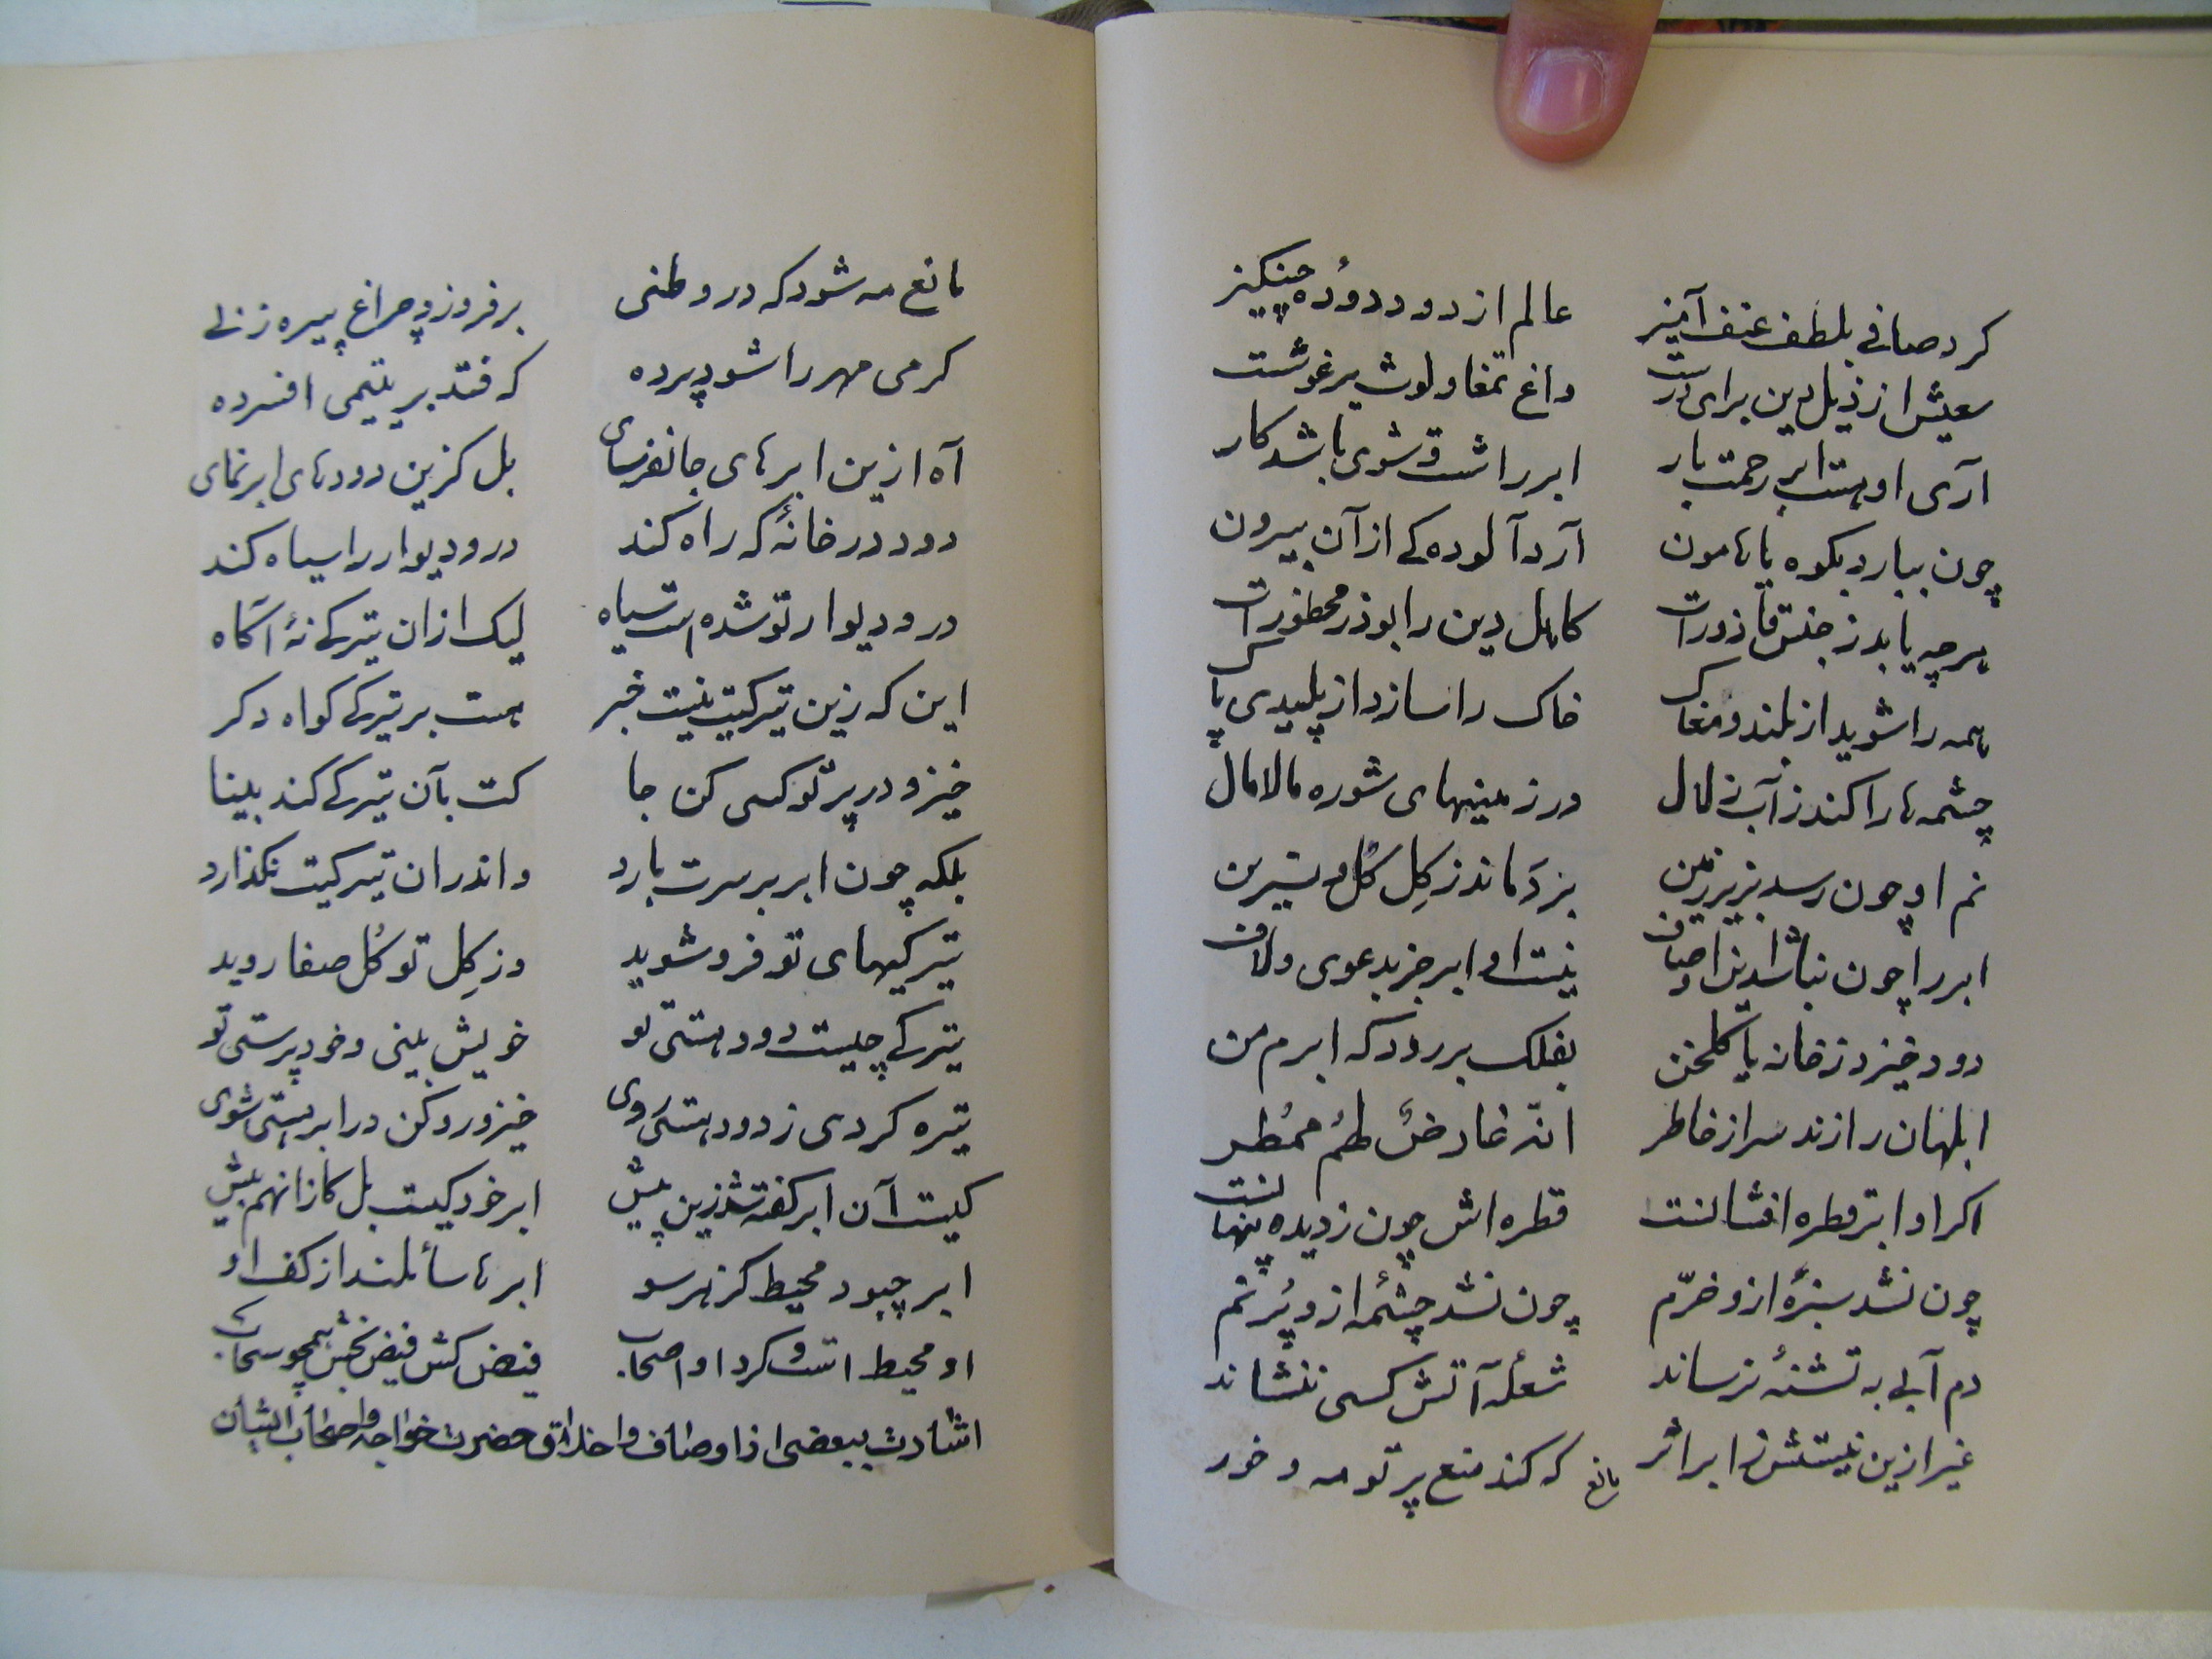 کرد صافی بلطف عنف آمیز عالم از دود دودهٔ چنکیز
سعیش از ذیل دین برای درست داغ تمغا و لوث یرغو شست
آری او هست ابر رحمت بار ابر را شست و شوی باشد کار
چون ببارد بکوه یا هامون آرد آلوده کے از آن بیرون
هرچه یابد ز جنس قاذورات کاهل دین را بود ز محظورات
همه را شوید از بلند و مغاک خاک را سازد از پلیدی پاک
چشمه ها را کند ز آب زلال ور زمینهای شوره مالامال
نم او چون رسد بزیر زمین بزدَماند ز کِل کُل و نسرین
ابر را چون نباشد این اوصاف نیست او ابر جز بدعوی و لاف
دود خیزد ز خانه یا کلخن بفلک بر رود که ابرم من
ابلهان را زند سر از خاطر انّه عارضٌ لهُم مُمُطر
اکر او ابر قطره افشانست قطره اش چون ز دیده پنهانست
چون نشد سبزهٔ ازو خرّم چون نشد چشمهٔ ازو پُر نم
دم آبی به تشنهٔ نرساند شعلهٔ آتش کسی ننشاند
غیر ازین نیستش ز ابر اثر که کند منع پرتو مه و خور
مانع
مانع مه شود که در وطنی برفروزد چراغ پیره زنے
کرمی مهر را شود پرده که فتد بر یتیمی افسرده
آه ازین ابرهای جانفرسای بل کزین دودهای ابر نمای
دود در خانهٔ که راه کند در و دیوار را سیاه کند
در و دیوار تو شده است سیاه لیک ازان تیرکے نهٔ آکاه
این که زین تیرکیت نیست خبر هست بر تیرکے کواه دکر
خیز و در پرتو کسی کن جا کت بآن تیرکے کند بینا
بلکه چون ابر بر سرت بارد و اندران تیرکیت نکذارد
تیرکیهای تو فرو شوید وز کِل تو کُل صفا روید
تیرکے چیست دود هستی تو خویش بینی و خود پرستی تو
تیره کردی ز دود هستی روی خیز و رو کن در ابر هستی شوی
کیست آن ابر کفته شد زین پیش ابر خود کیست بل کازانهم بیش
ابر چبود محیط کز هر سو ابرها سائلند از کف او
او محیط است و کرد او اصحاب فیض کش فیض بخش همچو سحاب
اشارت ببعضی از اوصاف و اخلاق حضرت خواجه و اصحاب ایشان